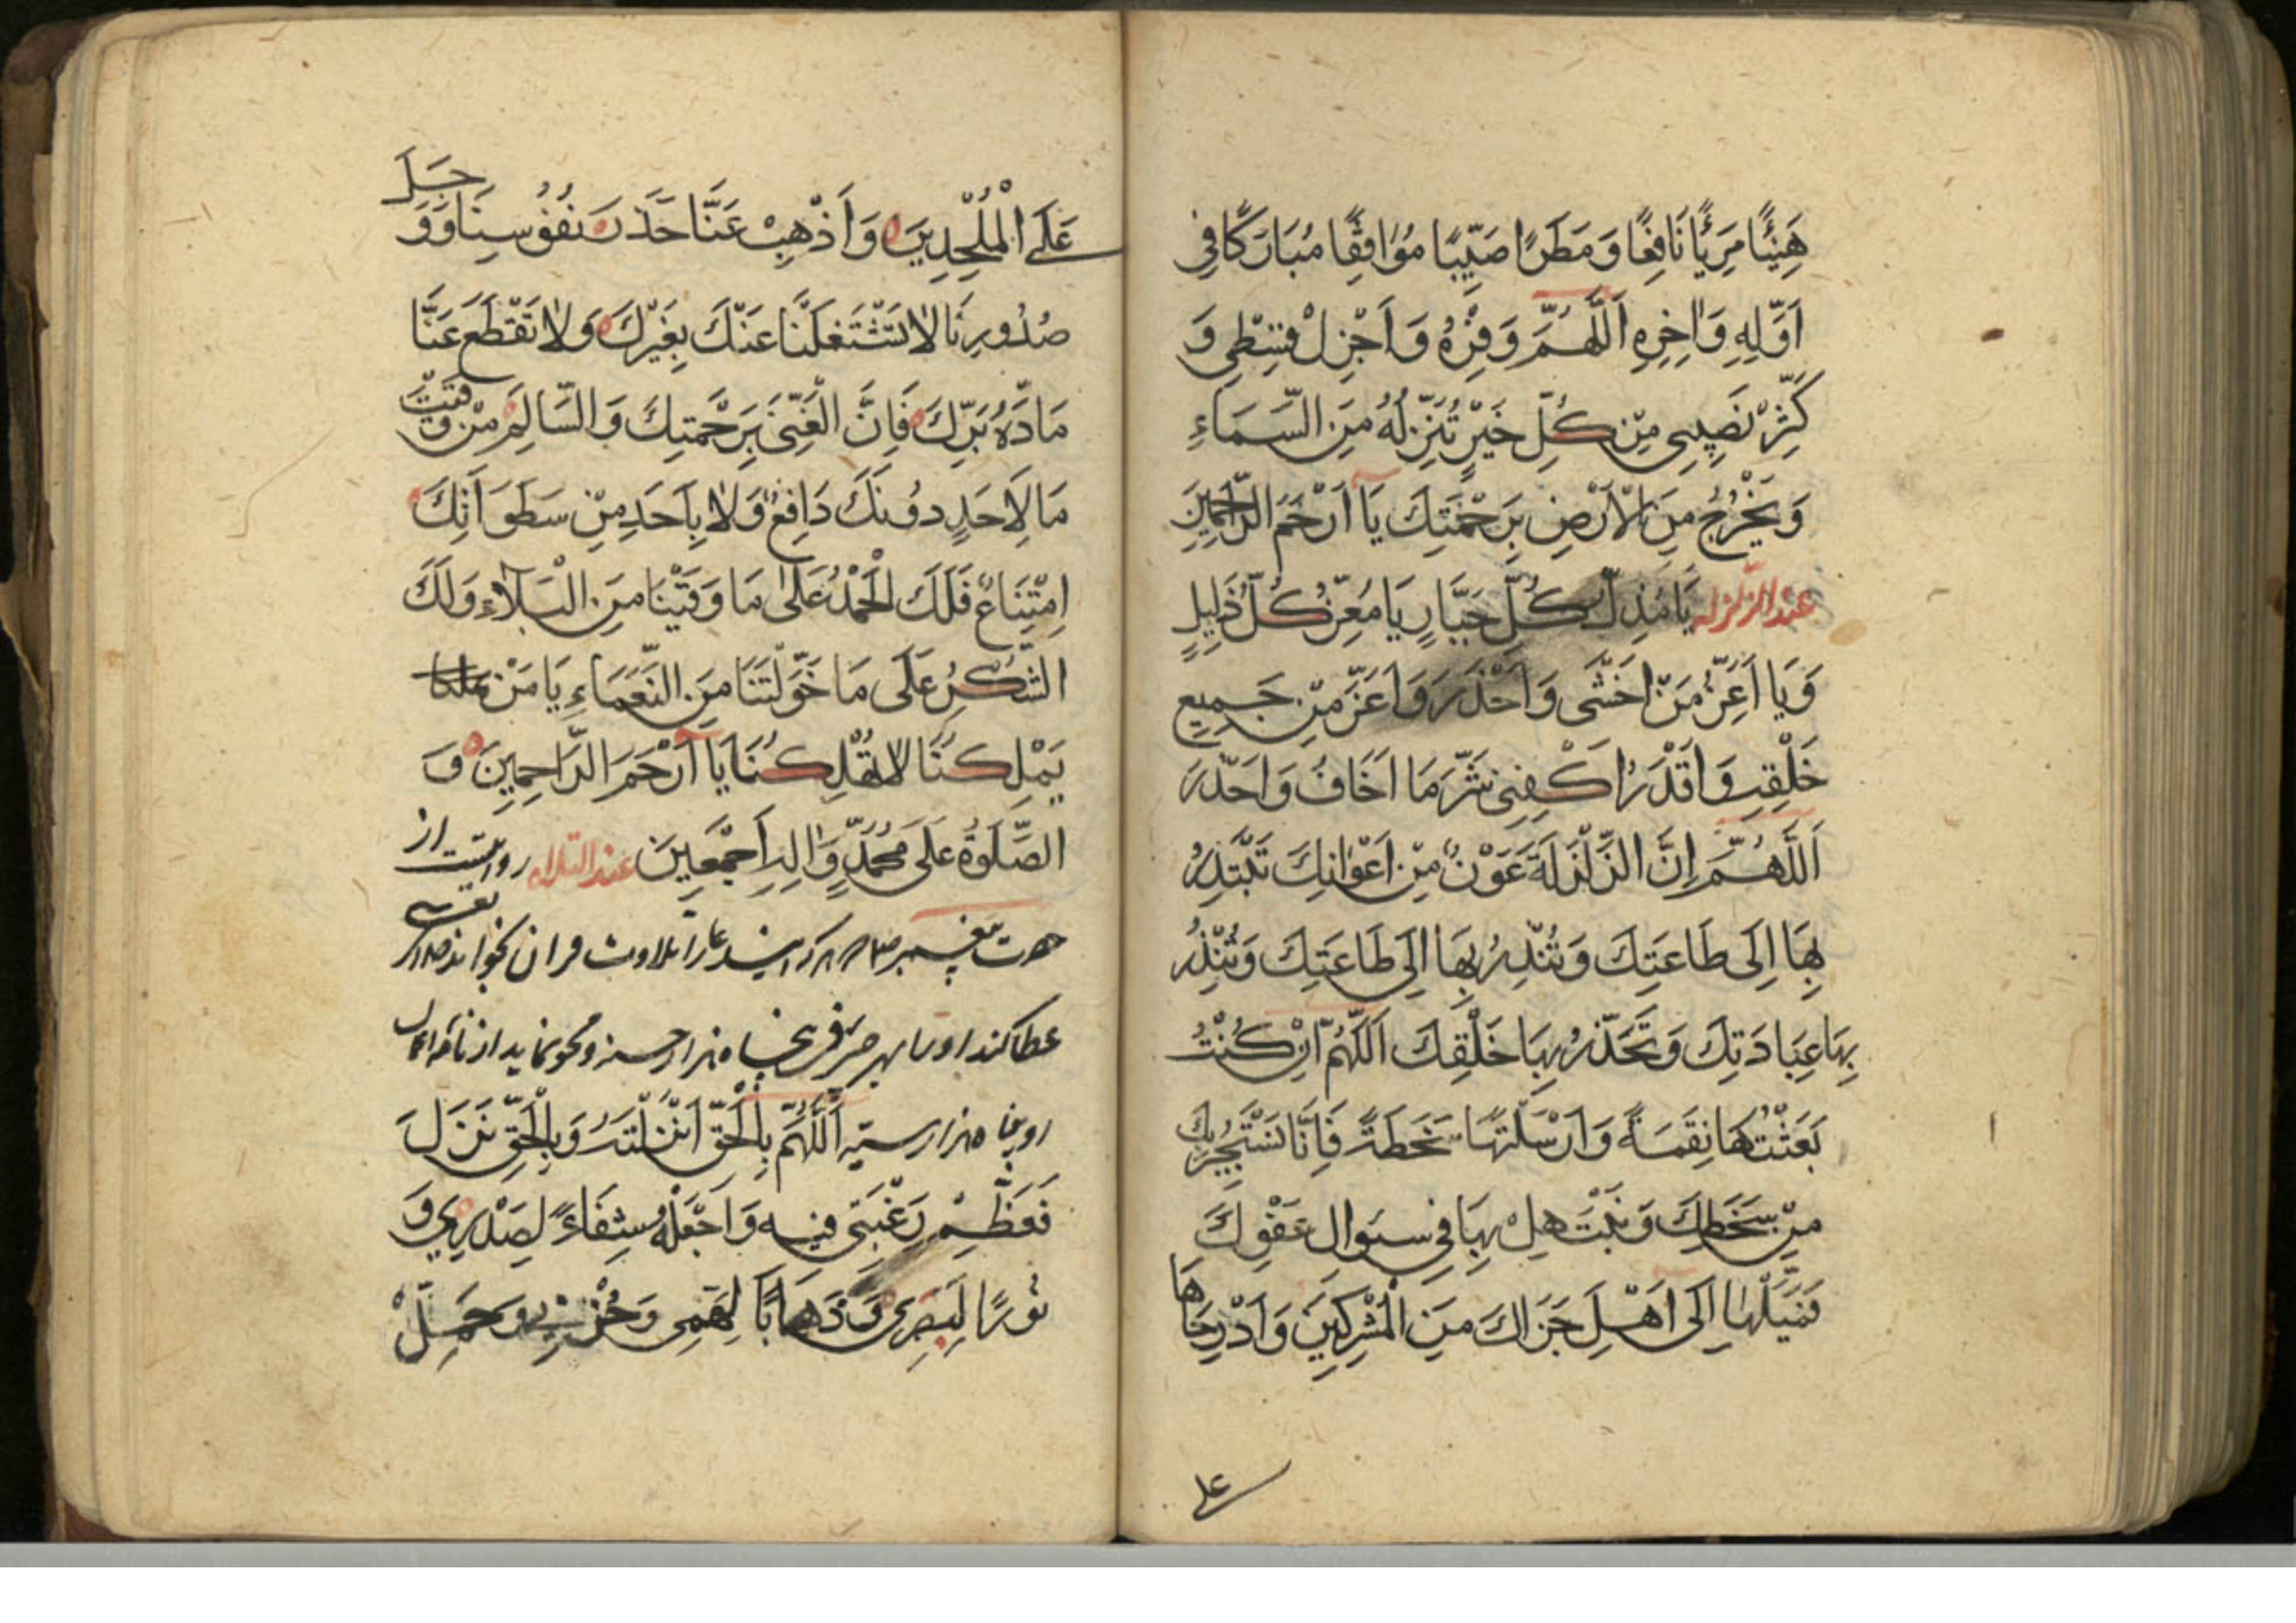 هَنِيئًا مَرِيئًا نَافِعًا وَمَطَرًا صَيِّبًا مُوَافِقًا مُبَارَكًا فِي
اَوَّلِهِ وَاٰخِرِهِ اَللّٰهُمَّ وَفِّرْهُ وَاَجْزِلْ قِسْطِي وَ
كَثِّرْ نَصِيبِي مِنْ كُلِّ خَيْرٍ تُنَزِّلُهُ مِنَ السَّمَاءِ
وَيَخْرُجُ مِنَ الْاَرْضِ بِرَحْمَتِكَ يَا اَرْحَمَ الرَّاحِمِينَ
عند الزلزله يَا مُذِلَّ كُلِّ جَبَّارٍ يَا مُعِزَّ كُلِّ ذَلِيلٍ
وَيَا اَعَزَّ مَنْ اَخْشَى وَاَحْذَرَ وَاَعَزَّ مِنْ جَمِيعِ
خَلْقِهِ وَاَقْدَرُ اكْفِنِي شَرَّ مَا اَخَافُ وَاَحْذَرَ
اَللّٰهُمَّ اِنَّ الزَّلْزَلَةَ عَوْنٌ مِنْ اَعْوَانِكَ تَبْتَدِرُ
بِهَا اِلَى طَاعَتِكَ وَتُنْذِرُ بِهَا اِلَى طَاعَتِكَ وَتُنْذِرُ
بِهَا عِبَادَتِكَ وَتُحَذِّرُ بِهَا خَلْقِكَ اَللّٰهُمَّ اِنْ كُنْتَ
بَعَثْتَهَا نِقْمَةً وَاَرْسَلْتَهَا سَخَطَةً فَاِنَّا نَسْتَجِيرُ بِكَ
مِنْ سَخَطِكَ وَنَبْتَهِلُ بِهَا فِي سُوَالِ عَفْوِكَ
فَمَيِّلْهَا اِلَى اَهْلِ جَزَاكَ مِنَ الْمُشْرِكِينَ وَاَدْرِجَاهَا
على
عَلَى الْمُلْحِدِينَ وَاَذْهِبْ عَنَّا حَذَرَ نُفُوسِنَا وَوَجَلَ
صُدُورِنَا لَا تَشْتَغِلَنَّا عَنْكَ بِغَيْرِكَ وَلَا تَقْطَع عَنَّا
مَادَّةُ بَرِّكَ فَاِنَّ الْغَنِيَّ بِرَحْمَتِكَ وَالسَّالِمَ مَنْ وَقَيْتَ
مَا لِاَحَدٍ دُونَكَ دَافِعٌ وَلَا بِاَحَدٍ مِنْ سَطَوَاتِكَ
اِمْتِنَاعٌ فَلَكَ الْحَمْدُ عَلَى مَا وَقَيْتَنَا مِنَ الْبَلَاءِ وَلَكَ
الشُّكْرُ عَلَى مَا خَوَّلْتَنَا مِنَ النَّعْمَاءِ يَا مَنْ
يَمْلِكُنَا لَا تُهْلِكْنَا يَا اَرْحَمَ الرَّاحِمِينَ وَ
الصَّلٰوةُ عَلَى مُحَمَّدٍ وَاٰلِهِ اَجْمَعِينَ عند التلاوه روايتست از
حضرت پيغمبر ص هر كه اين دعا را بتلاوت قران بخواند حق تعالى
عطا كند او را بهر حرفى پنجاه هزار حسنه و محو نمايد از نامه اعمال
او پنجاه هزار سيه اَللّٰهُمَّ بِالْحَقِّ اَنْزَلْتَهُ وَبِالْحَقِّ نَزَلَ
فَعَظِّمْ رَغْبَتِي فِيهِ وَاجْعَلْهُ شِفَاءً لِصَدْرِي وَ
نُورًا لِبَصَرِي وَذَهَابًا لِهَمِّي وَحُزْنِي وَجَمِّلْ